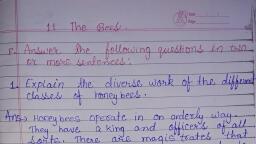 11 The Bees.
F. Answer the following questions in two
or more sentences:
1. Explain the diverse work of the different
classes of honeybees.
Ans→ Honeybees operate in an orderly way.
They have a king and officers of all
sorts. There are magistrates that